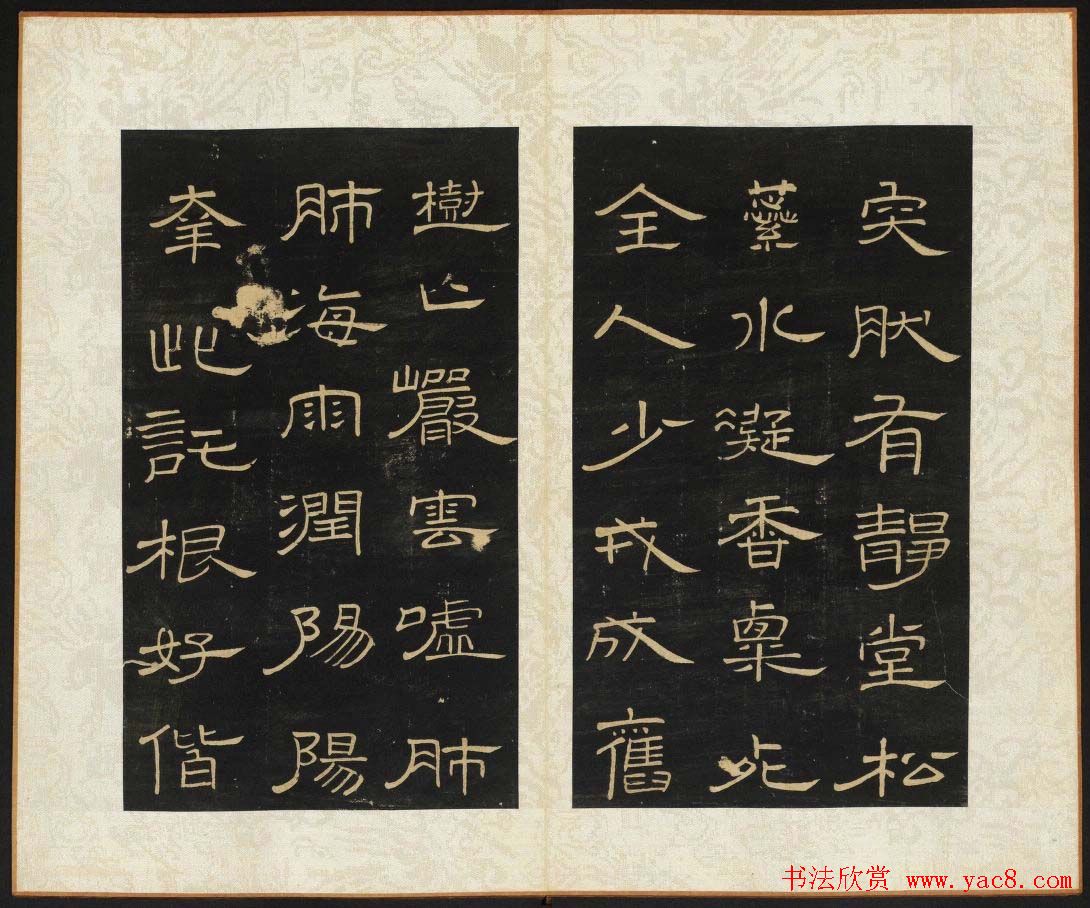 突肰有靜堂松
水凝香
全人少戎放舊
樹亡巖雲嘘肺
肺海雨潤陽陽
此託根好偕
书法欣赏 www.yac8.com